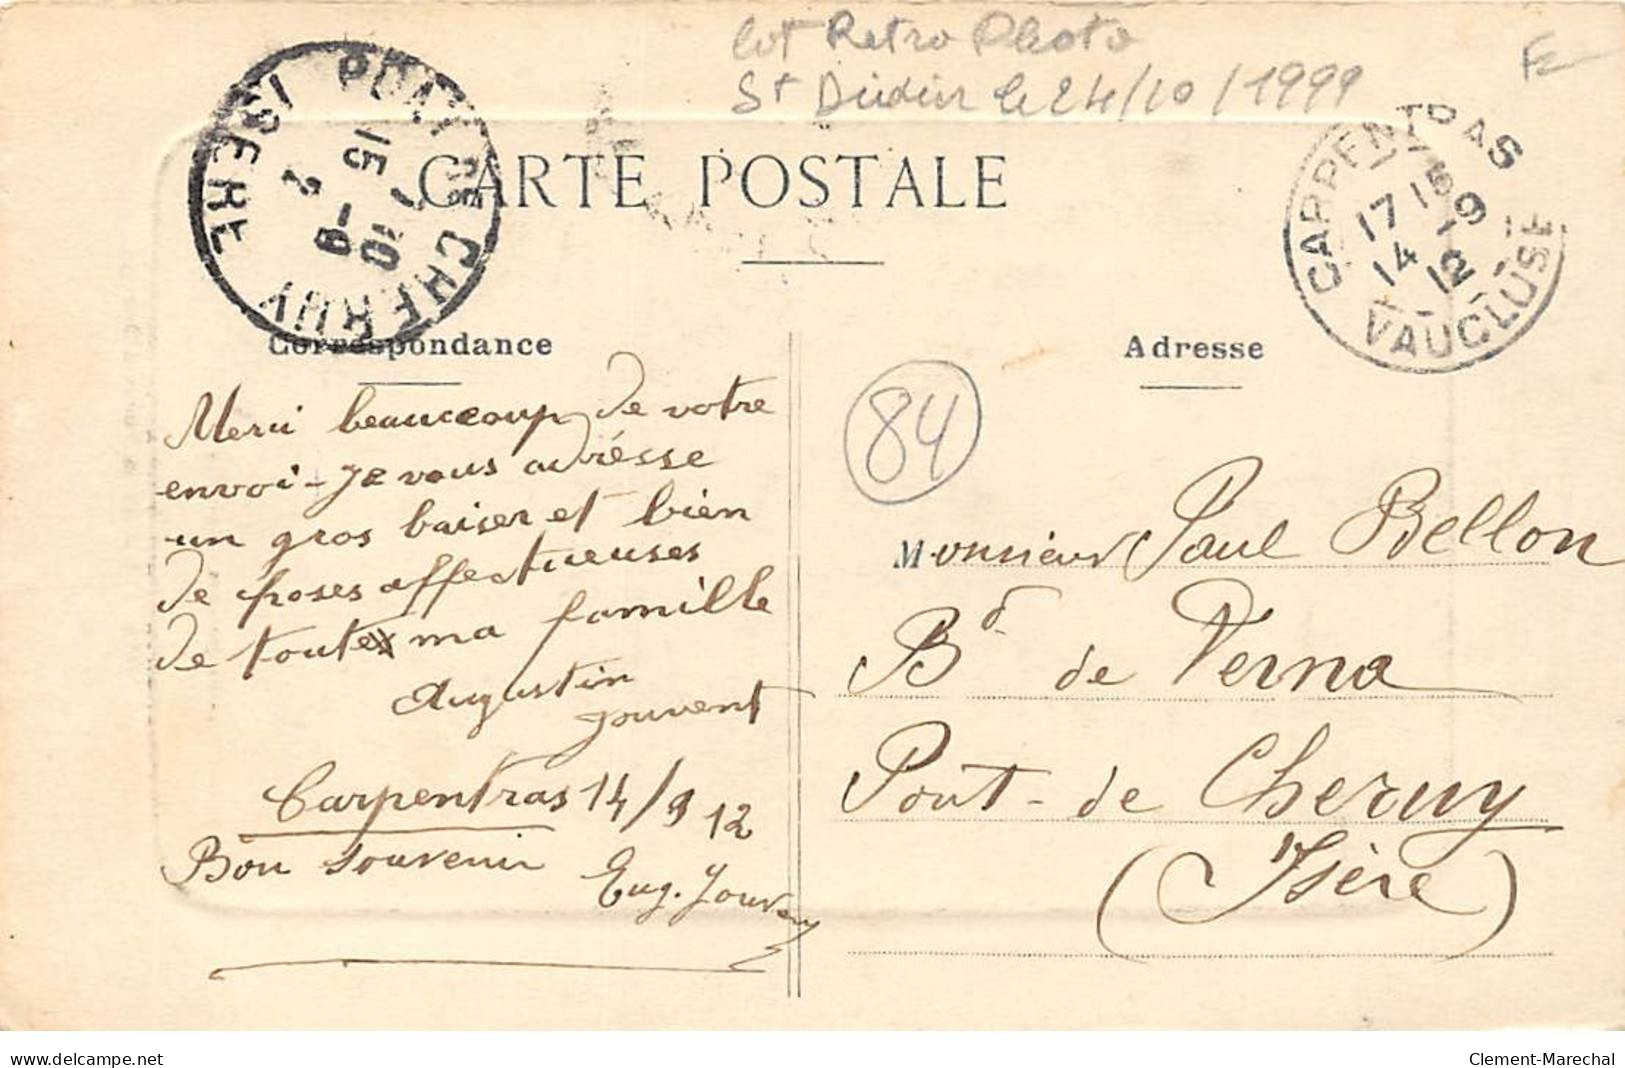 Lot Retro Photo
St Didier le 24/10/1999
PONT DE CHERUY
ISERE
15 10
2 - 9
CARTE POSTALE
CARPENTRAS
17 15
14 - 9
12
VAUCLUSE
Correspondance
Adresse
84
Merci beaucoup de votre
envoi - Je vous adrésse
un gros baiser et bien
de choses affectueuses
de toute ma famille
Augustin
Jouvent
Carpentras 14/9 12
Bon souvenir
Eug. Jouvent
Monsieur Paul Bellon
Bd de Verna
Pont-de Cheruy
(Isère)
www.delcampe.net
Clement-Marechal